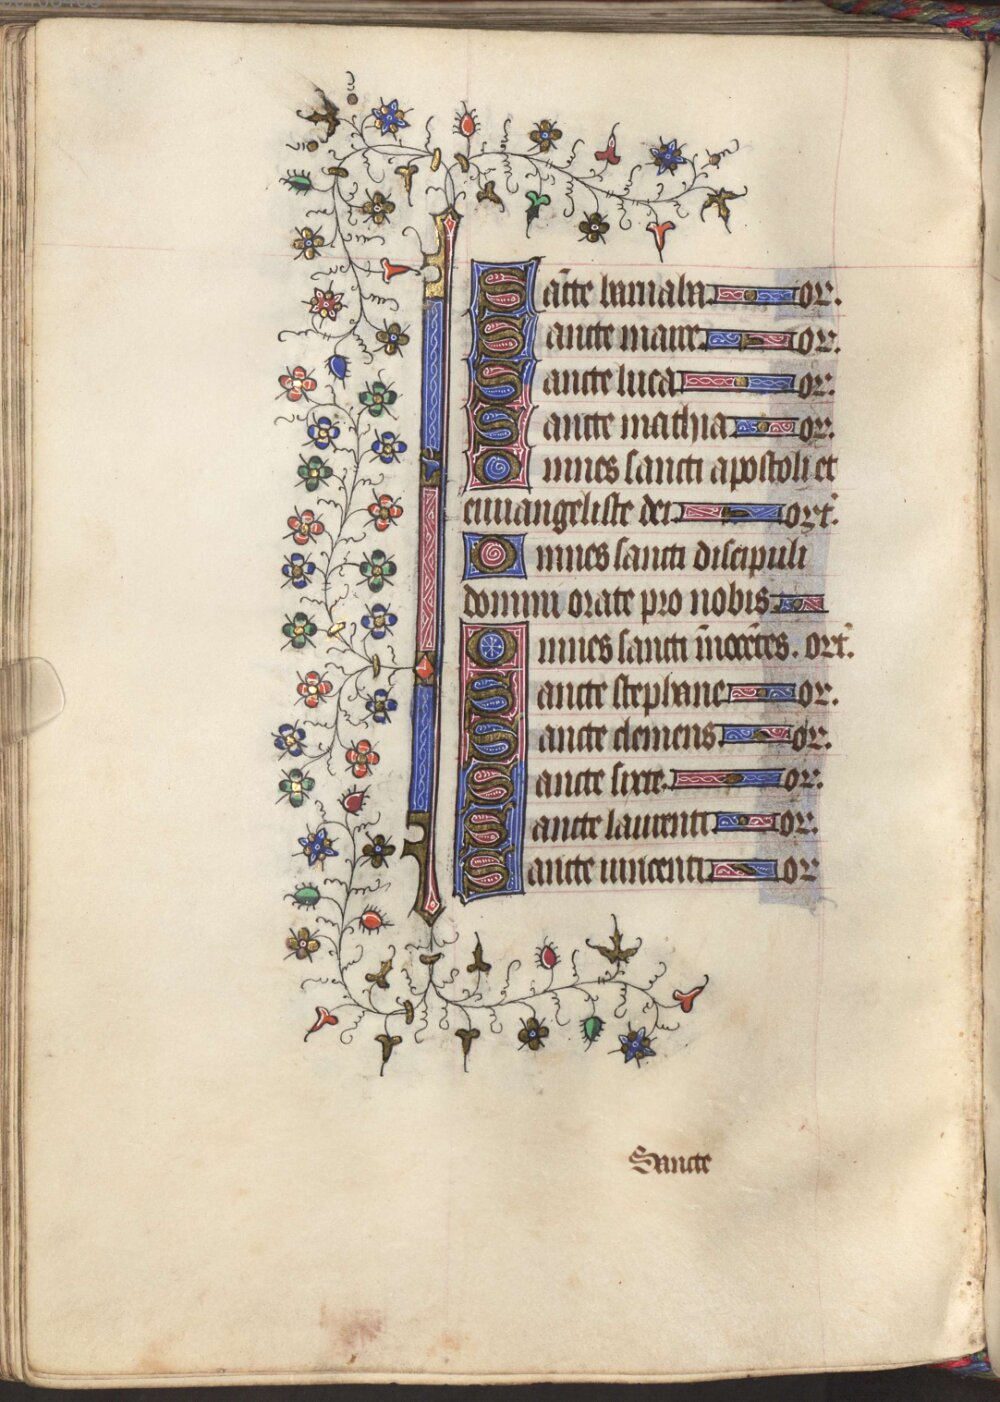 Sācte barnaba or.
Sancte marce or.
Sancte luca or.
Sancte mathia or.
Omnes sancti apostoli et
euuangeliste dei ort.
Omnes sancti discipuli
domini orate pro nobis
Omnes sancti īnocētes. ort.
Sancte stephane or.
Sancte clemens or.
Sancte sixte. or.
Sancte laurenti or.
Sancte uincenti or
Sancte